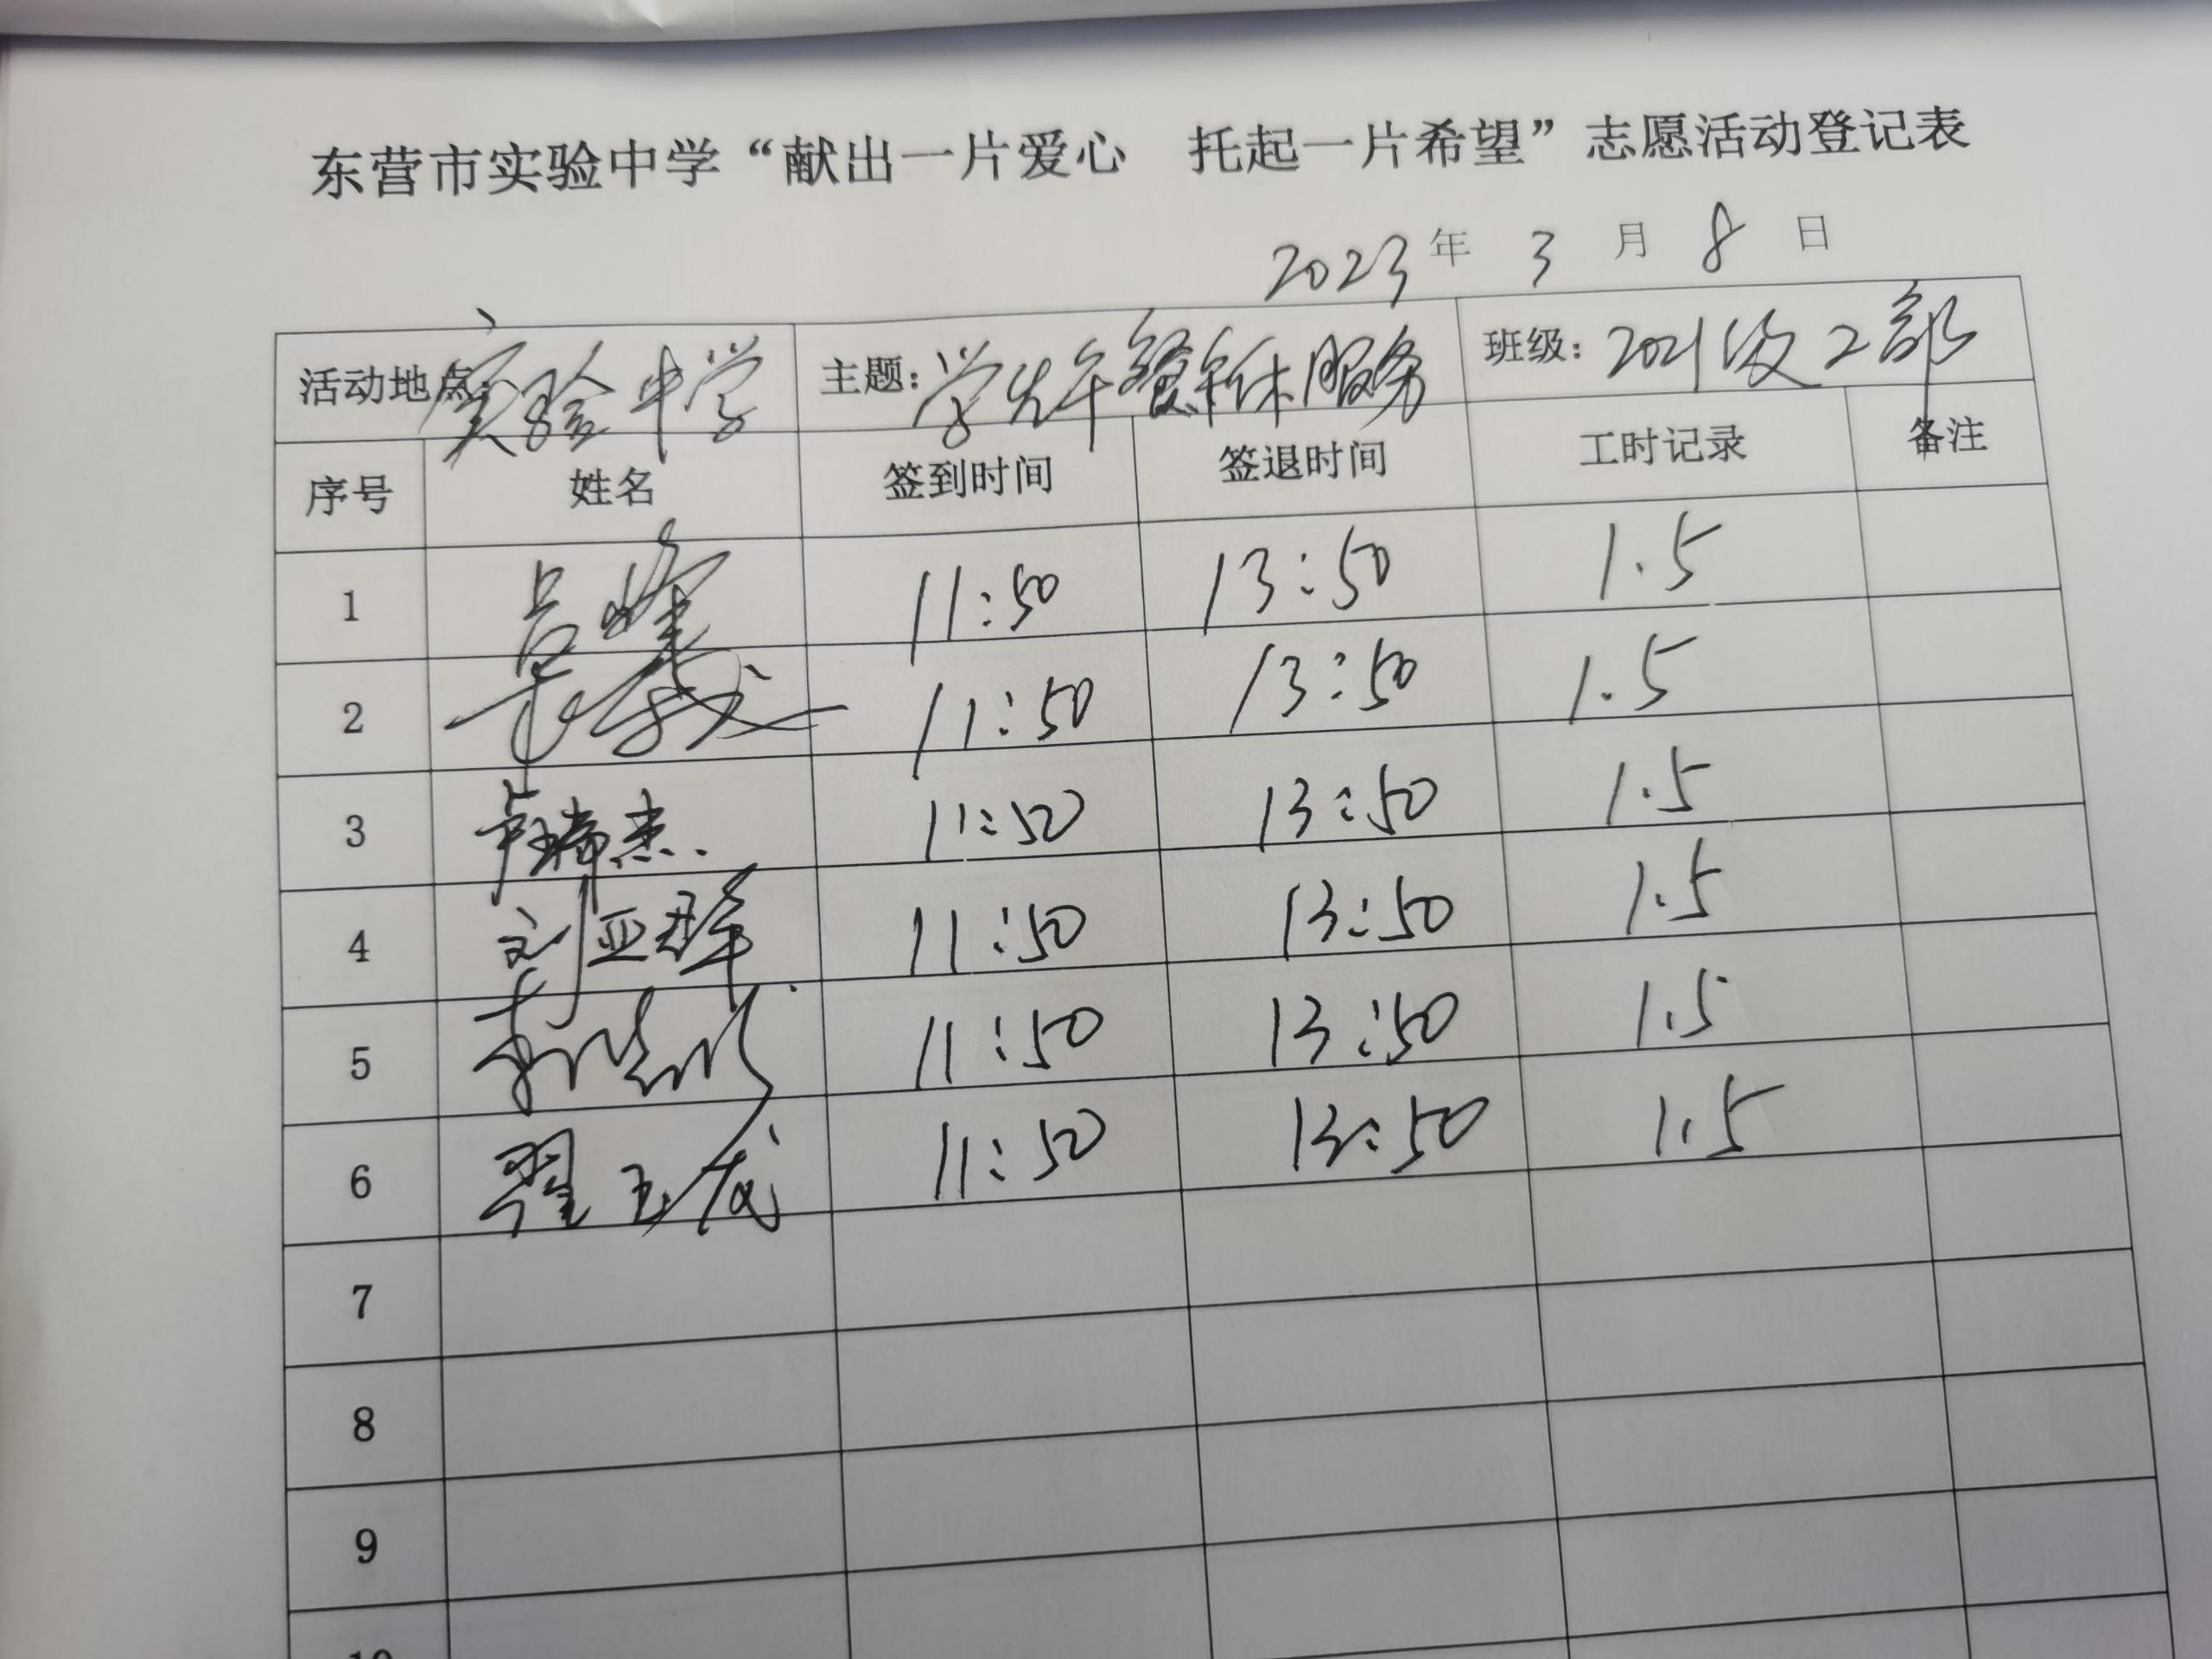 东营市实验中学“献出一片爱心 托起一片希望”志愿活动登记表
2023年 3 月 8 日
活动地点：实验中学 主题：学生午餐午休服务 班级：2021级2部
序号 姓名 签到时间 签退时间 工时记录 备注
1 11:50 13:50 1.5
2 11:50 13:50 1.5
3 卢瑞杰 11:50 13:50 1.5
4 刘亚群 11:50 13:50 1.5
5 11:50 13:50 1.5
6 翟玉龙 11:50 13:50 1.5
7
8
9
10